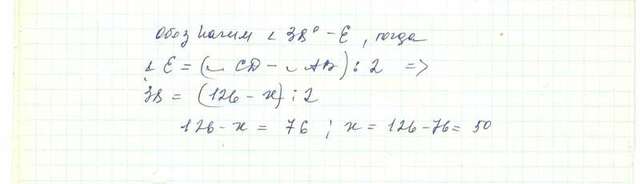 Обозначим ∠ 38° - E, тогда
∠ E = (◡ CD - ◡ AB) : 2 =>
38 = (126 - x) : 2
126 - x = 76 ; x = 126 - 76 = 50